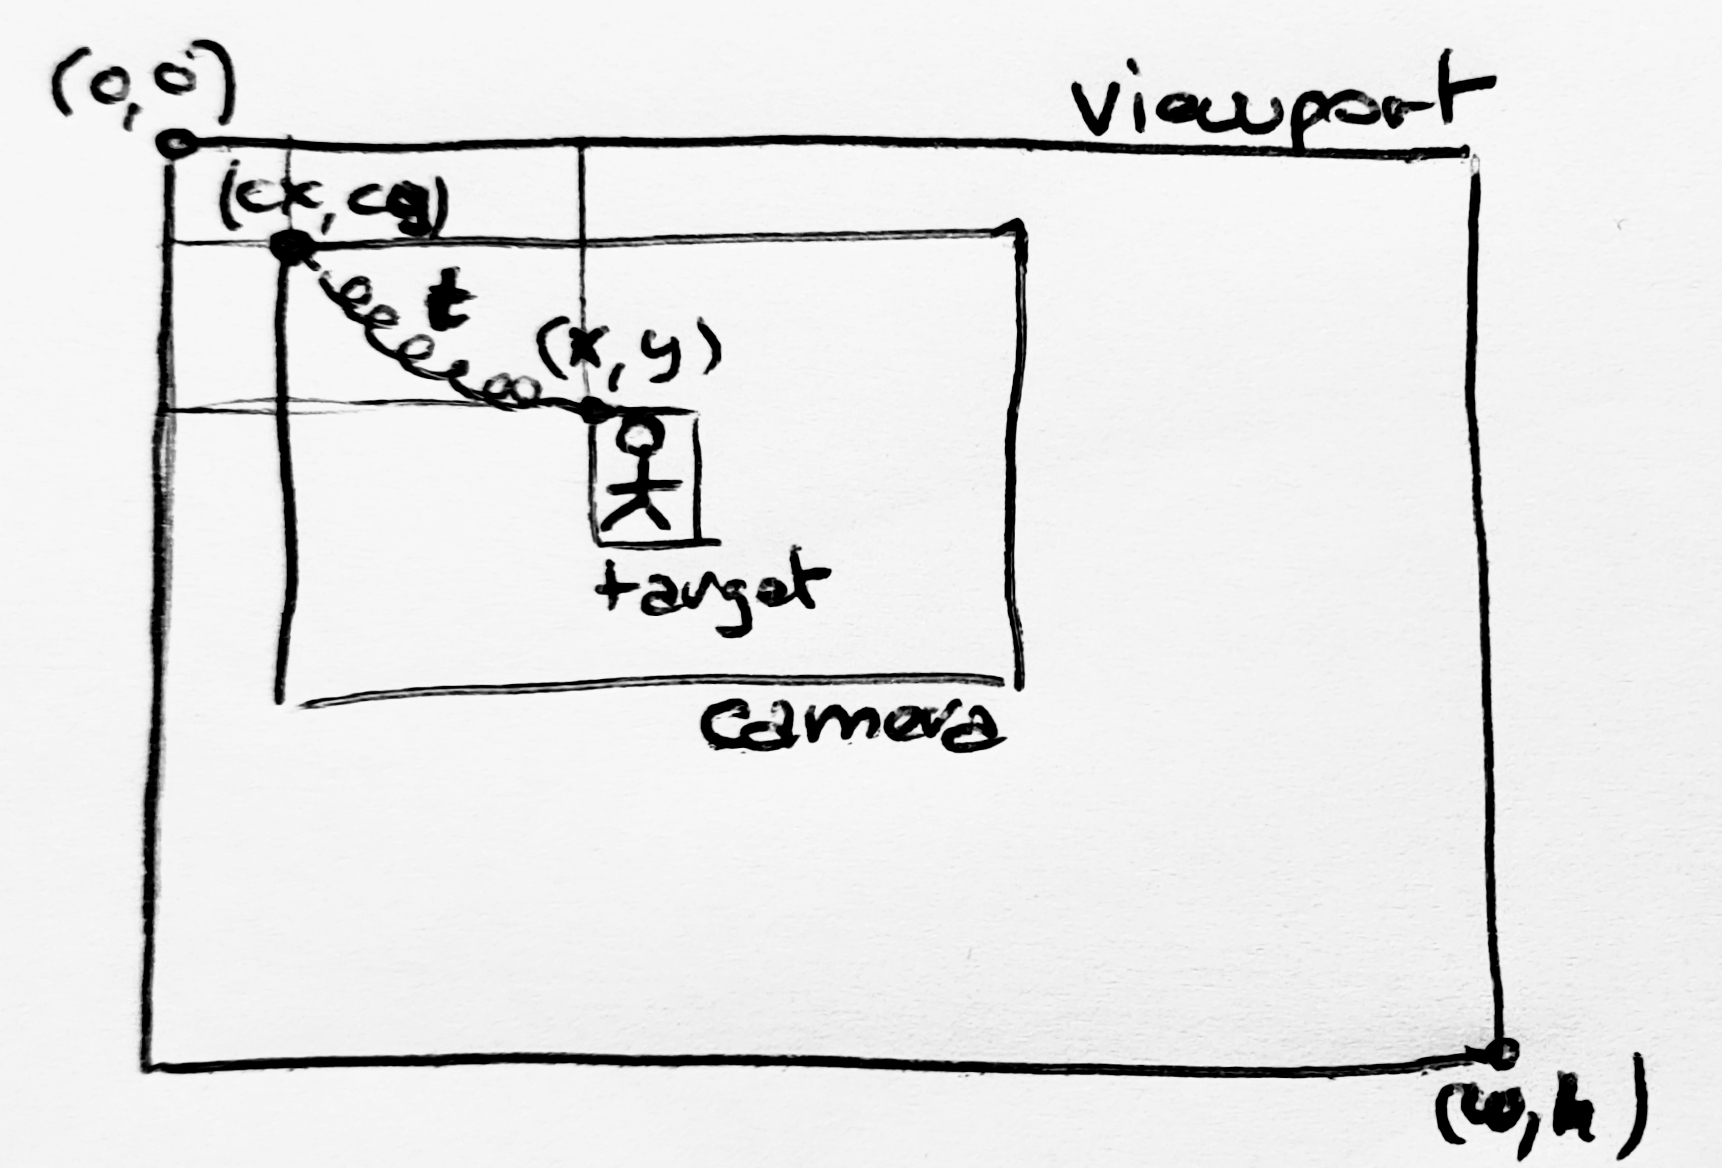 (0,0)
viewport
(cx, cy)
t
(x, y)
target
camera
(w, h)